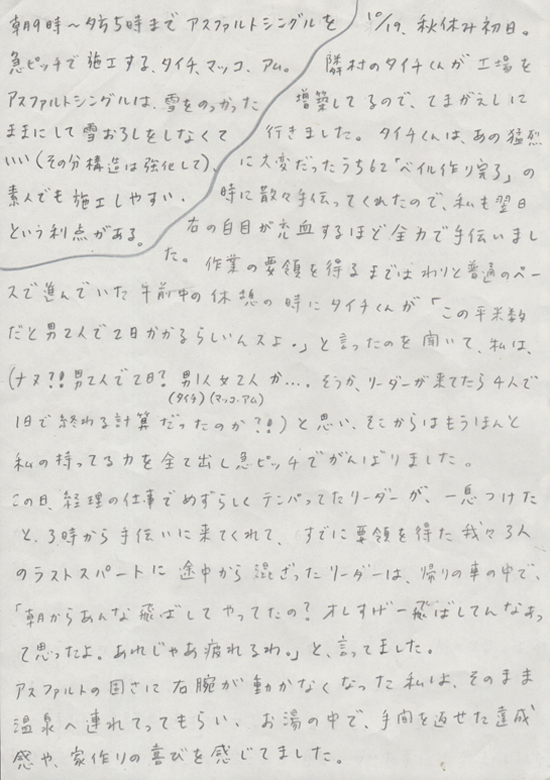 朝9時〜夕方5時まで アスファルトシングルを
急ピッチで施工する、タイチ、マッコ、アム。
アスファルトシングルは、雪をのっかった
ままにして雪おろしをしなくて
いい(その分構造は強化して)、
素人でも施工しやすい、
という利点がある。
10/19、秋休み初日。
隣村のタイチくんが工場を
増築してるので、てまがえしに
行きました。タイチくんは、あの猛烈
に大変だったうち62「ベイル作り完了」の
時に散々手伝ってくれたので、私も翌日
右の白目が充血するほど全力で手伝いまし
た。作業の要領を得るまではわりと普通のペー
スで進んでいた午前中の休憩の時にタイチくんが「この平米数
だと男2人で2日かかるらしいんスよ。」と言ったのを聞いて、私は、
(ナヌ?!男2人で2日?男1人女2人か…。そうか、リーダーが来てたら4人で
(タイチ)(マッコ、アム)
1日で終わる計算だったのか?!)と思い、そこからはもうほんと
私の持ってる力を全て出し急ピッチでがんばりました。
この日、経理の仕事でめずらしくテンパってたリーダーが、一息つけた
と、3時から手伝いに来てくれて、すでに要領を得た我々3人
のラストスパートに途中から混ざったリーダーは、帰りの車の中で、
「朝からあんな飛ばしてやってたの?オレすげー飛ばしてんなぁっ
て思ったよ。あれじゃあ疲れるわ。」と、言ってました。
アスファルトの固さに右腕が動かなくなった私は、そのまま
温泉へ連れてってもらい、お湯の中で、手間を返せた達成
感や、家作りの喜びを感じてました。